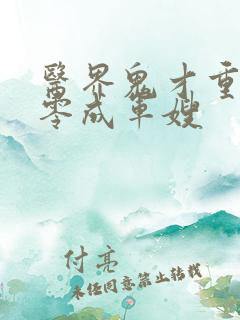 醫界鬼才重
零成軍嫂
付亮
未经同意禁止转载